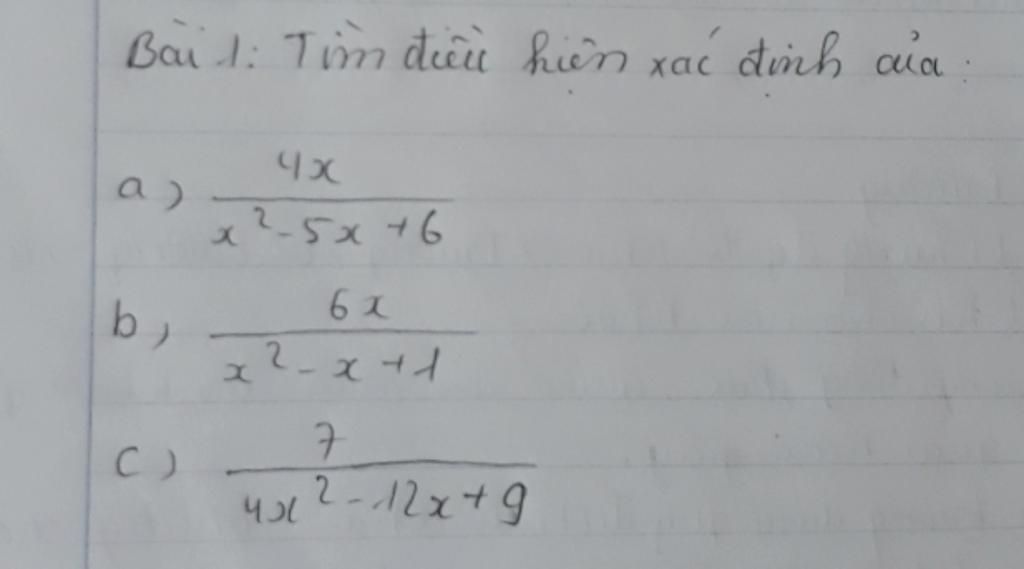 Bài 1: Tìm điều kiện xác định của:
a) \frac{4x}{x^2-5x+6}
b, \frac{6x}{x^2-x+1}
c) \frac{7}{4x^2-12x+9}